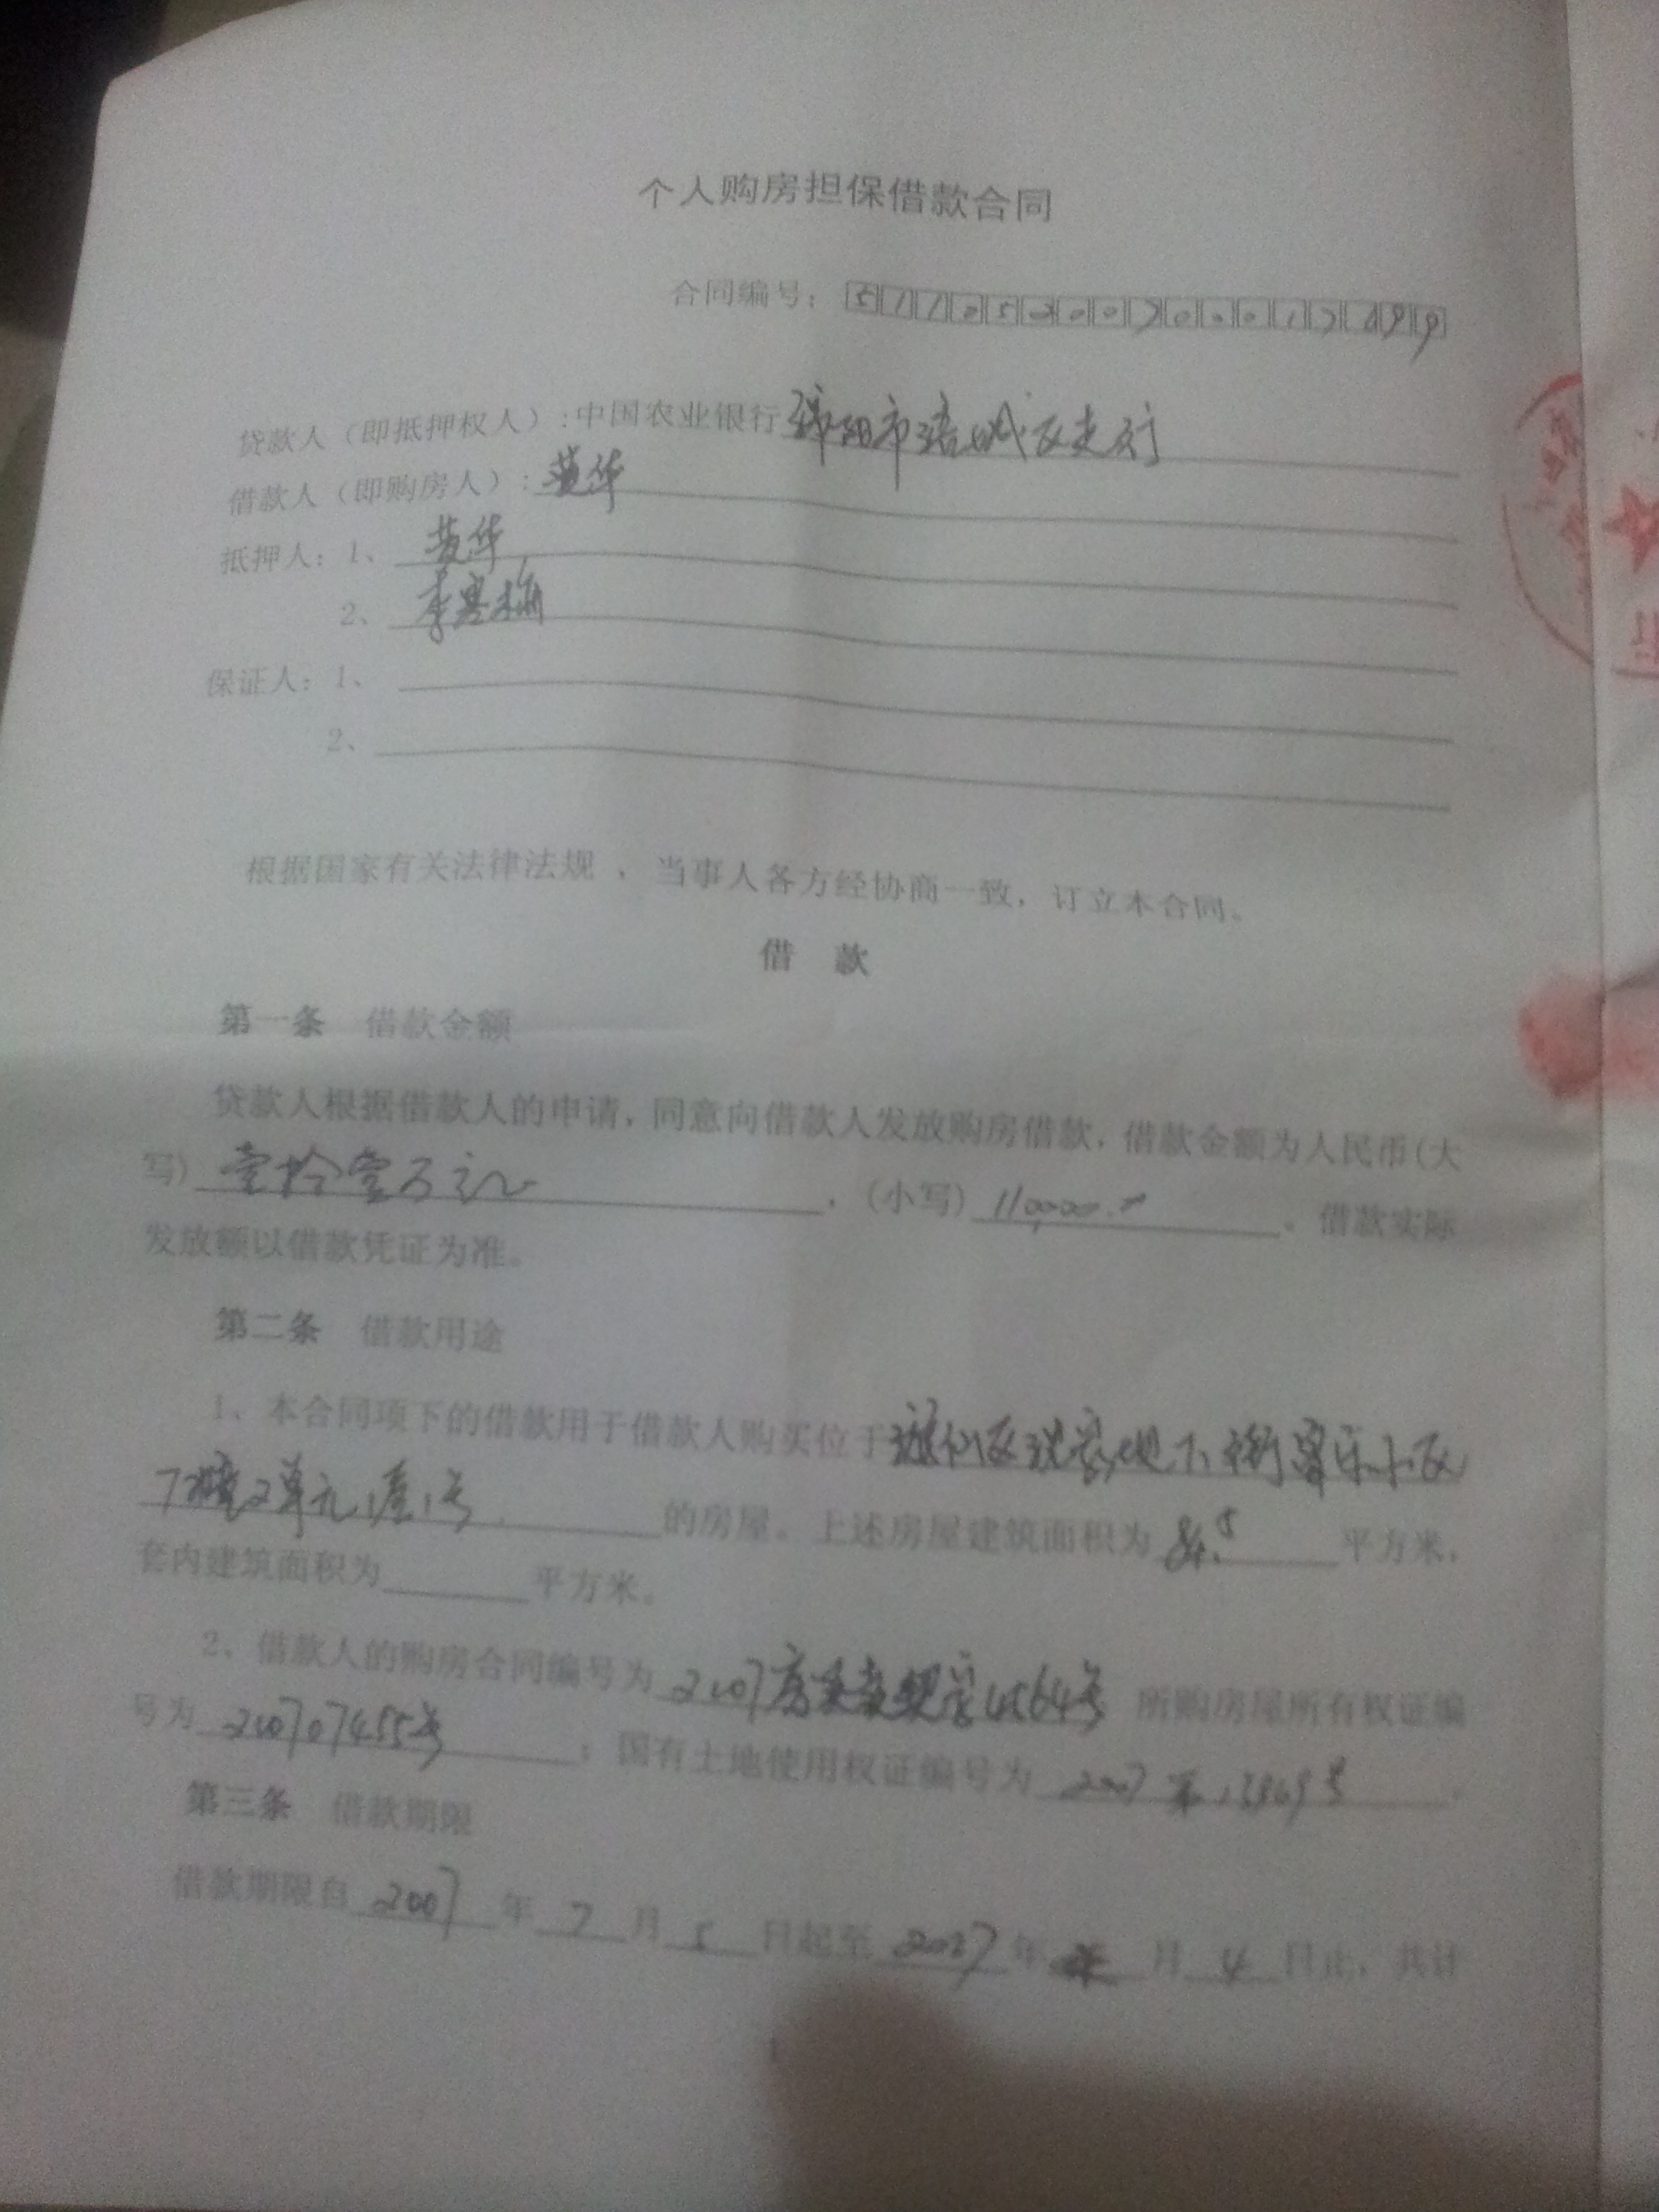 个人购房担保借款合同
合同编号：
贷款人（即抵押权人）:中国农业银行绵阳市涪城区支行
借款人（即购房人）:黄华
抵押人：1、黄华
2、李寒梅
保证人：1、
2、
根据国家有关法律法规，当事人各方经协商一致，订立本合同。
借 款
第一条 借款金额
贷款人根据借款人的申请，同意向借款人发放购房借款，借款金额为人民币(大
写) 壹拾壹万元 ，(小写) 。借款实际
发放额以借款凭证为准。
第二条 借款用途
1、本合同项下的借款用于借款人购买位于游仙区沈家坝下街 小区
7幢2单元1层1号 的房屋。上述房屋建筑面积为 84.5 平方米，
套内建筑面积为 平方米。
2、借款人的购房合同编号为 2007房 4564号 所购房屋所有权证编
号为 200707455号 ；国有土地使用权证编号为 2007第13369号 .
第三条 借款期限
借款期限自 2007 年 7 月 5 日起至 2027 年 月 4 日止，共计
1